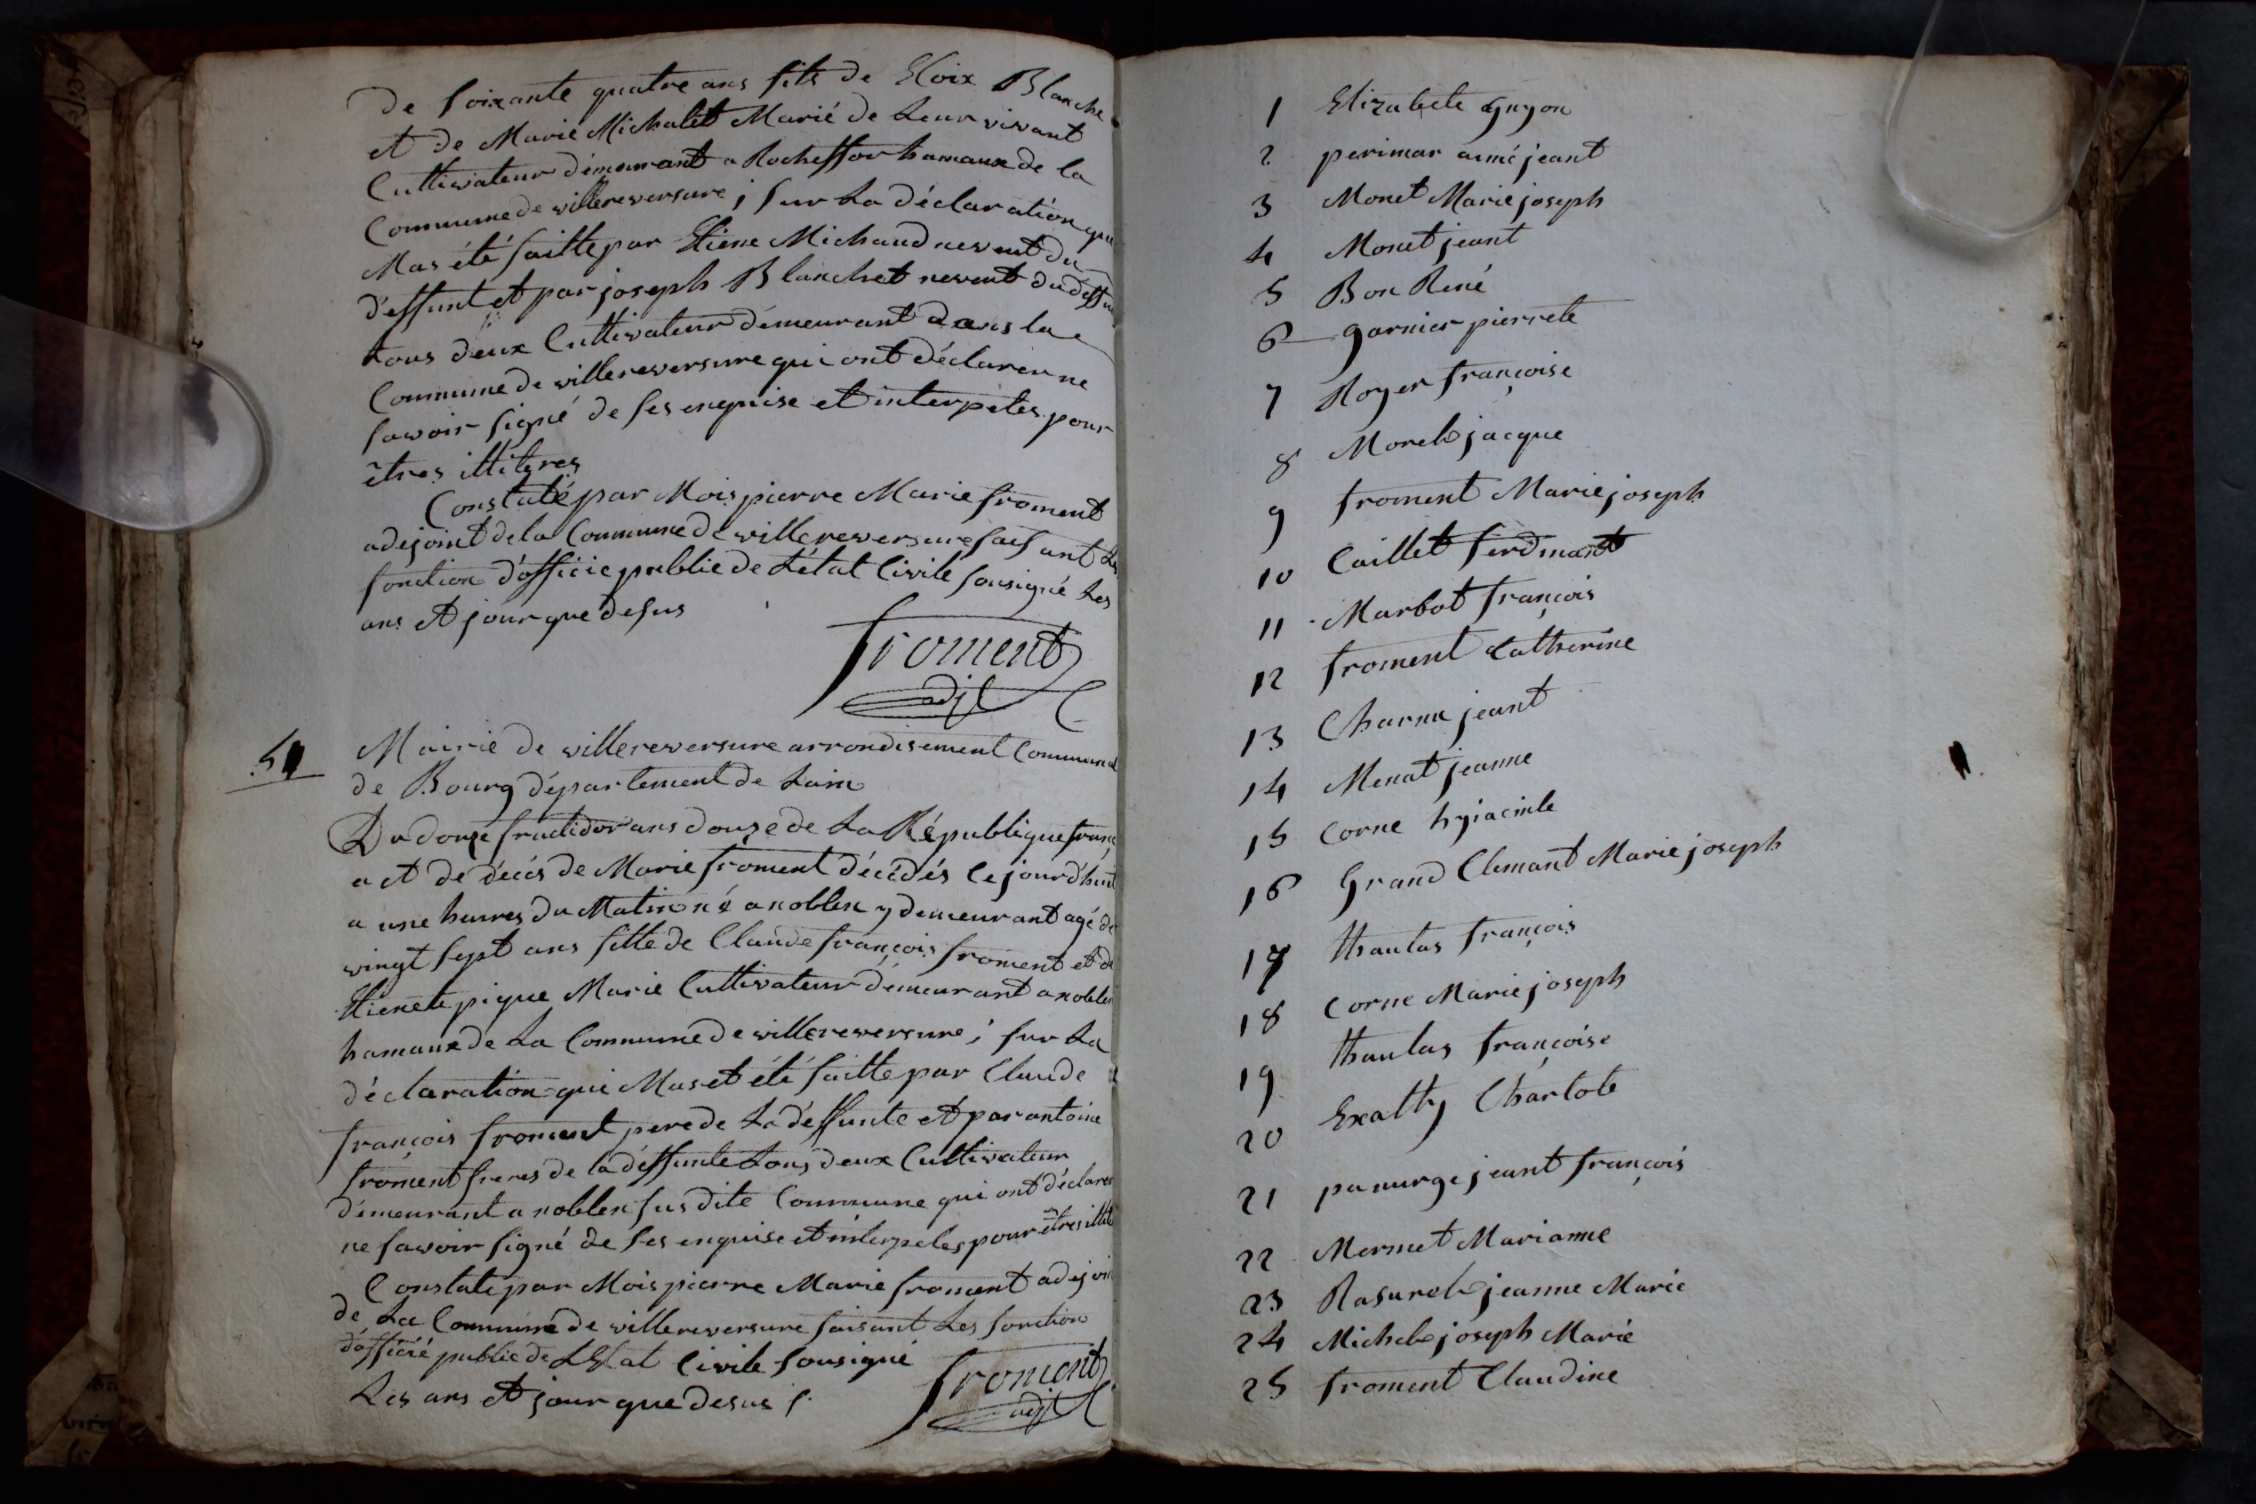 de soixante quatre ans fils de Eloix Blanche
et de Marie Michalet Marié de Leur vivant
Cultivateur démeurant a Rocheffor hamaux de la
Commune de villereversure ; sur La déclaration que
Mas été faitte par Etiene Michaud nevent du
d'effunt et par joseph Blanchet nevent du déffun
tous deux Cultivateur démeurant dans la
Commune de villereversure qui ont déclarer ne
savoir signé de ses enquise et interpeles pour
êtres illiteres
Constaté par Mois pierre Marie froment
adejoint de la Commune de villereversure faisant Les
fonction d'officie public de L'état Civile sousigné Les
ans et jour que desus
froment
adjt
51
Mairie de villereversure arrondisement Communal
de Bourg département de Lain
Du douze fructidor ans douze de La République franç
act de décés de Marie froment décédés Cejourd'hui
a une heures du Matin né a noblen y demeurant agé de
vingt sept ans fille de Claude françois froment et de
Etienete pique Marie Cultivateur démeurant a noblen
hamaux de La Commune de villereversure ; sur La
déclaration qui Mas et été faitte par Claude
françois froment pere de La déffunte et par antoine
froment freres de la déffunte tous deux Cultivateur
démeurant a noblen susdite Commune qui ont déclarer
ne savoir signé de ses enquise et interpeles pour êtres illite
Constate par Mois pierre Marie froment adejoin
de La Commune de villereversure faisant Les fonction
d'officié public de L'Etat Civile sousigné
Les ans et jour que desus
froment
adjt
1 Elizabete Guyon
2 perimar aimé jeant
3 Monet Marie joseph
4 Monet jeant
5 Bon René
6 garnier pierrete
7 Royer françoise
8 Morel jacque
9 froment Marie joseph
10 Caillet ferdinant
11 Marbot françois
12 froment Catherine
13 Charnu jeant
14 Menat jeanne
15 Corne hyiacinte
16 Grand Clemant Marie joseph
17 thaulas françois
18 Corne Marie joseph
19 thaulas françoise
20 Exalty Charlote
21 panurge jeant françois
22 Mermet Marianne
23 Rasurel jeanne Marie
24 Michel joseph Marie
25 froment Claudine